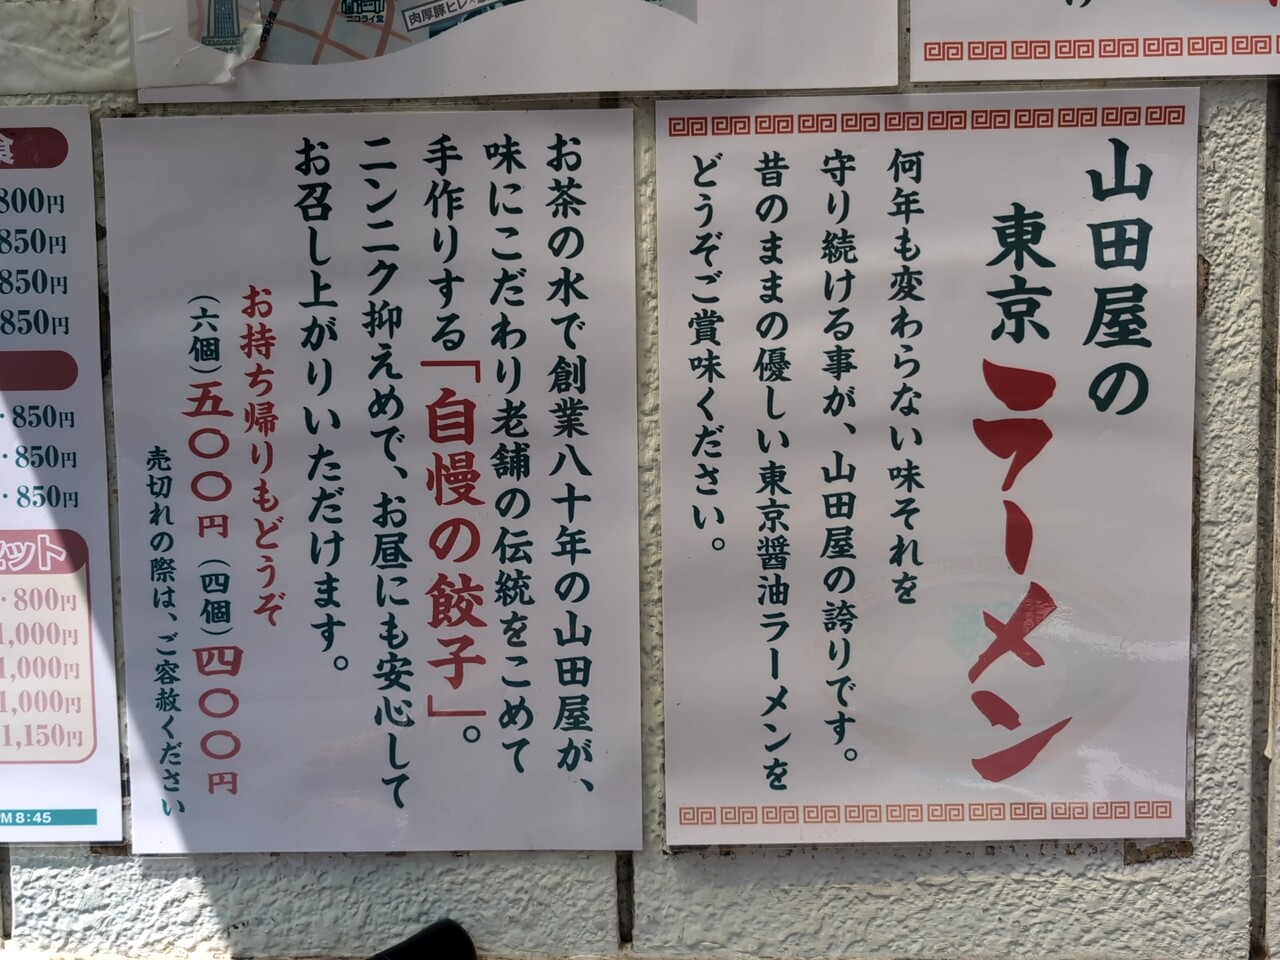 ニコライ堂
肉厚豚ヒレ
山田屋の
東京
ラーメン
何年も変わらない味それを
守り続ける事が、山田屋の誇りです。
昔のままの優しい東京醤油ラーメンを
どうぞご賞味ください。
お茶の水で創業八十年の山田屋が、
味にこだわり老舗の伝統をこめて
手作りする「自慢の餃子」。
ニンニク抑えめで、お昼にも安心して
お召し上がりいただけます。
お持ち帰りもどうぞ
（六個）五〇〇円（四個）四〇〇円
売切れの際は、ご容赦ください
食
800円
850円
850円
850円
850円
850円
850円
セット
800円
1,000円
1,000円
1,000円
1,150円
PM8:45